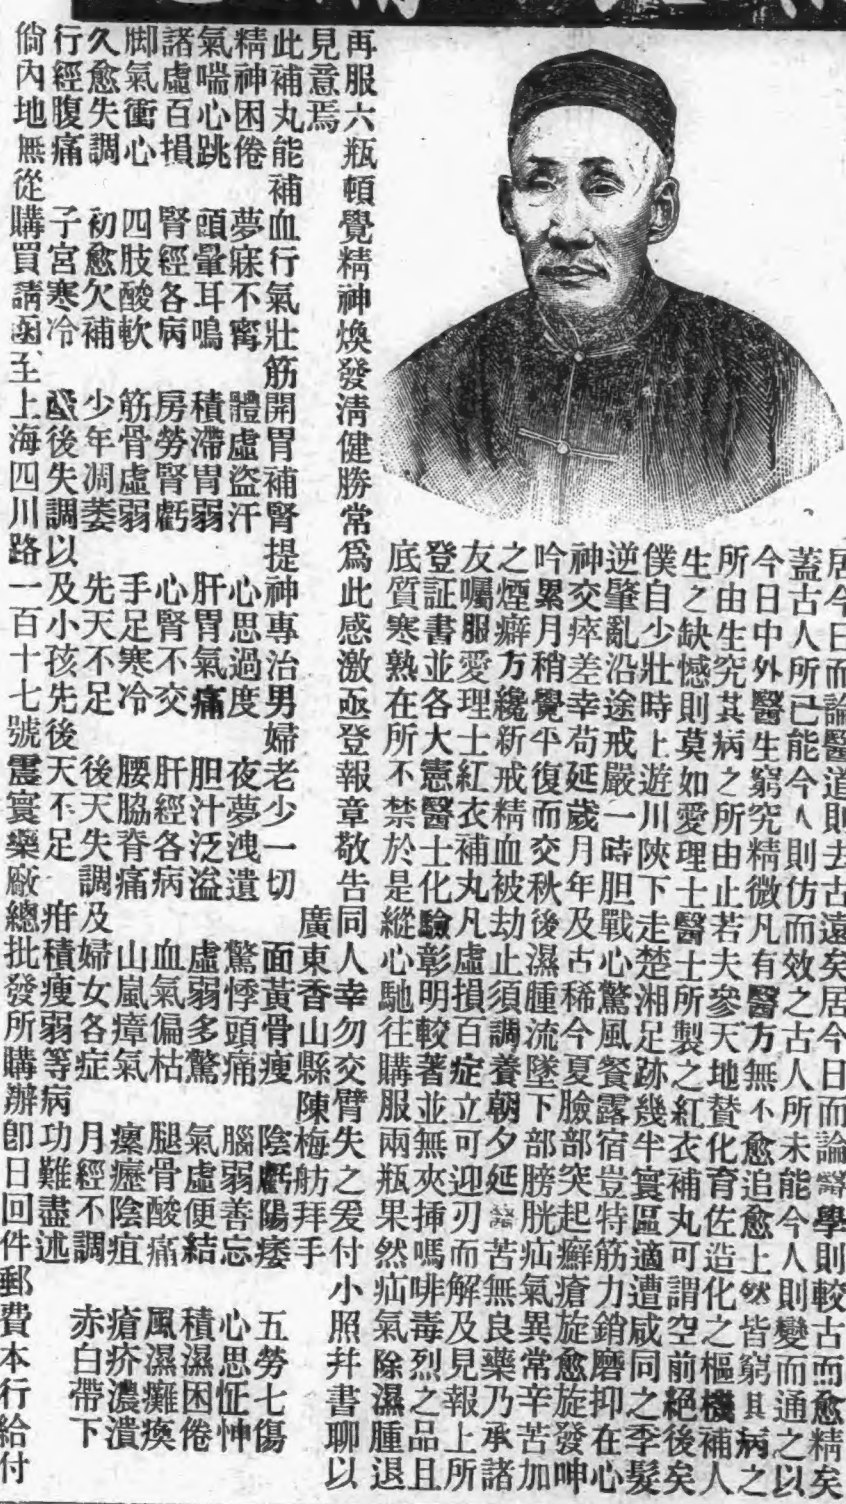 居今日而論醫道則去古遠矣居今日而論醫學則較古而愈精矣
蓋古人所已能今人則仿而效之古人所未能今人則變而通之以
今日中外醫生窮究精微凡有醫方無不愈追愈上然皆窮其病之
所由生究其病之所由止若夫參天地贊化育佐造化之樞機補人
生之缺憾則莫如愛理士醫士所製之紅衣補丸可謂空前絕後矣
僕自少壯時上遊川陝下走楚湘足跡幾半寰區適遭咸同之季髮
逆肇亂沿途戒嚴一時胆戰心驚風餐露宿豈特筋力銷磨抑在心
神交瘁差幸苟延歲月年及古稀今夏臉部突起癬瘡旋愈旋發呻
吟累月稍覺平復而交秋後濕腫流墜下部膀胱疝氣異常辛苦加
之煙癖方纔新戒精血被劫止須調養朝夕延醫苦無良藥乃承諸
友囑服愛理士紅衣補丸凡虛損百症立可迎刃而解及見報上所
登証書並各大憲醫士化驗彰明較著並無夾揷嗎啡毒烈之品且
底質寒熟在所不禁於是縱心馳往購服兩瓶果然疝氣除濕腫退
再服六瓶頓覺精神煥發淸健勝常爲此感激亟登報章敬告同人幸勿交臂失之爰付小照幷書聊以
見意焉 廣東香山縣陳梅舫拜手
此補丸能補血行氣壯筋開胃補腎提神專治男婦老少一切 面黃骨瘦 陰虧陽痿 五勞七傷
精神困倦 夢寐不寗 體虛盜汗 心思過度 夜夢洩遺 驚悸頭痛 腦弱善忘 心思怔忡
氣喘心跳 頭暈耳鳴 積滯胃弱 肝胃氣痛 胆汁泛溢 虛弱多驚 氣虛便結 積濕困倦
諸虛百損 腎經各病 房勞腎虧 心腎不交 肝經各病 血氣偏枯 腿骨酸痛 風濕癱瘓
脚氣衝心 四肢酸軟 筋骨虛弱 手足寒冷 腰脇脊痛 山嵐瘴氣 瘰癧陰疽 瘡疥濃潰
久愈失調 初愈欠補 少年凋萎 先天不足 後天失調及婦女各症 月經不調 赤白帶下
行經腹痛 子宮寒冷 產後失調以及小孩先後天不足 疳積瘦弱等病功難盡述
倘內地無從購買請函至上海四川路一百十七號震寰藥廠總批發所購辦卽日回件郵費本行給付